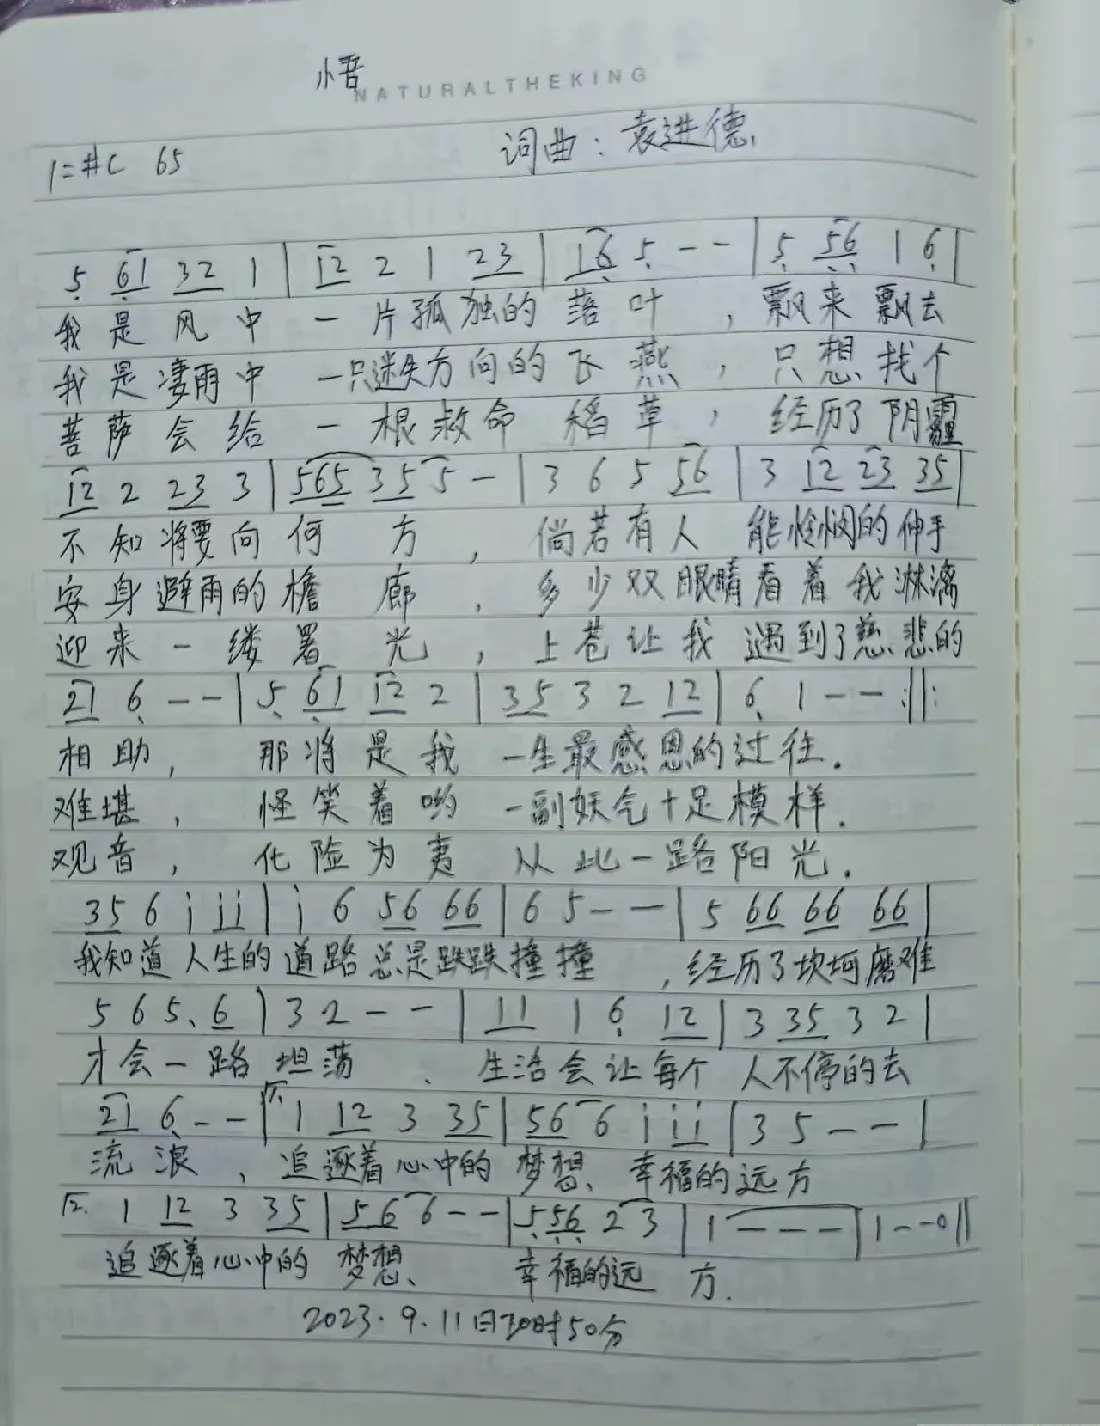 悟
NATURALTHEKING
1=#C 65 词曲：袁进德
5 61 32 1 | 12 2 1 23 | 16 5 - - | 5 56 1 6 |
我是风中一片孤独的落叶，飘来飘去
我是凄雨中一只迷失方向的飞燕，只想找个
菩萨会给一根救命稻草，经历了阴霾
12 2 23 3 | 565 35 5 - | 3 6 5 56 | 3 12 23 35 |
不知将要向何方，倘若有人能怜悯的伸手
安身避雨的檐廊，多少双眼睛看着我淋漓
迎来一缕署光，上苍让我遇到了慈悲的
21 6 - - | 5 61 12 2 | 35 3 2 12 | 6 1 - - :||:
相助，那将是我一生最感恩的过往.
难堪，怪笑着哟一副妖气十足模样.
观音，化险为夷从此一路阳光.
35 6 i ii | i 6 56 66 | 6 5 - - | 5 66 66 66 |
我知道人生的道路总是跌跌撞撞，经历了坎坷磨难
5 6 5. 6 | 3 2 - - | 11 1 6 12 | 3 35 3 2 |
才会一路坦荡、生活会让每个人不停的去
21 6 - - | 1. 1 12 3 35 | 56 6 i ii | 3 5 - - |
流浪，追逐着心中的梦想、幸福的远方
2. 1 12 3 35 | 56 6 - - | 556 2 3 | 1 - - - | 1 - - 0 ||
追逐着心中的梦想、幸福的远方.
2023.9.11日20时50分